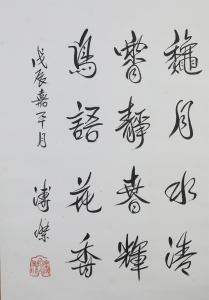 龝月水清
靜春輝
鳥語花香
戊辰嘉平月
溥傑